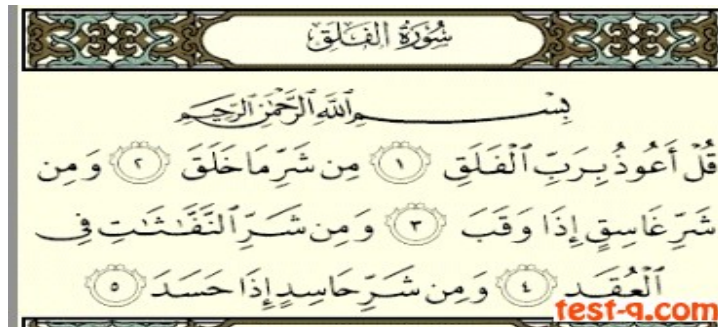 سُورَةُ الْفَلَقِ
بِسْمِ ٱللَّهِ ٱلرَّحْمَٰنِ ٱلرَّحِيمِ
قُلْ أَعُوذُ بِرَبِّ ٱلْفَلَقِ ١ مِن شَرِّ مَا خَلَقَ ٢ وَمِن
شَرِّ غَاسِقٍ إِذَا وَقَبَ ٣ وَمِن شَرِّ ٱلنَّفَّٰثَٰتِ فِى
ٱلْعُقَدِ ٤ وَمِن شَرِّ حَاسِدٍ إِذَا حَسَدَ ٥
test-q.com